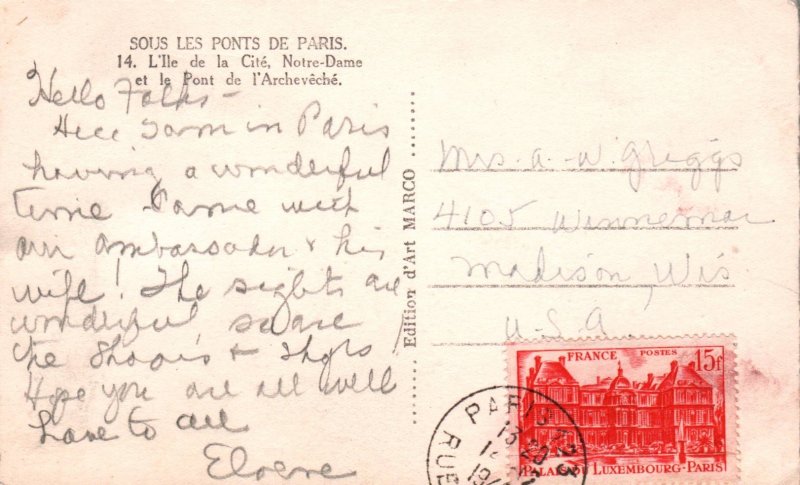 SOUS LES PONTS DE PARIS.
14. L'Ile de la Cité, Notre-Dame
et le Pont de l'Archevêché.
Hello Folks -
Here I am in Paris
having a wonderful
time. Came with
our ambassador & his
wife! The sights are
wonderful, so are
the shows & shops
Hope you are all well
Love to all
Edition d'Art MARCO
Mrs. A. W. Griggs
4105
Madison, Wis
U.S.A.
FRANCE POSTES 15f
PALAIS DU LUXEMBOURG-PARIS
PARIS
RUE